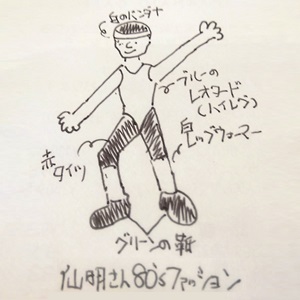 白のバンダナ
ブルーの
レオタード
(ハイレグ)
白
レッグウォーマー
赤
タイツ
グリーンの靴
仙明さん80'sファッション